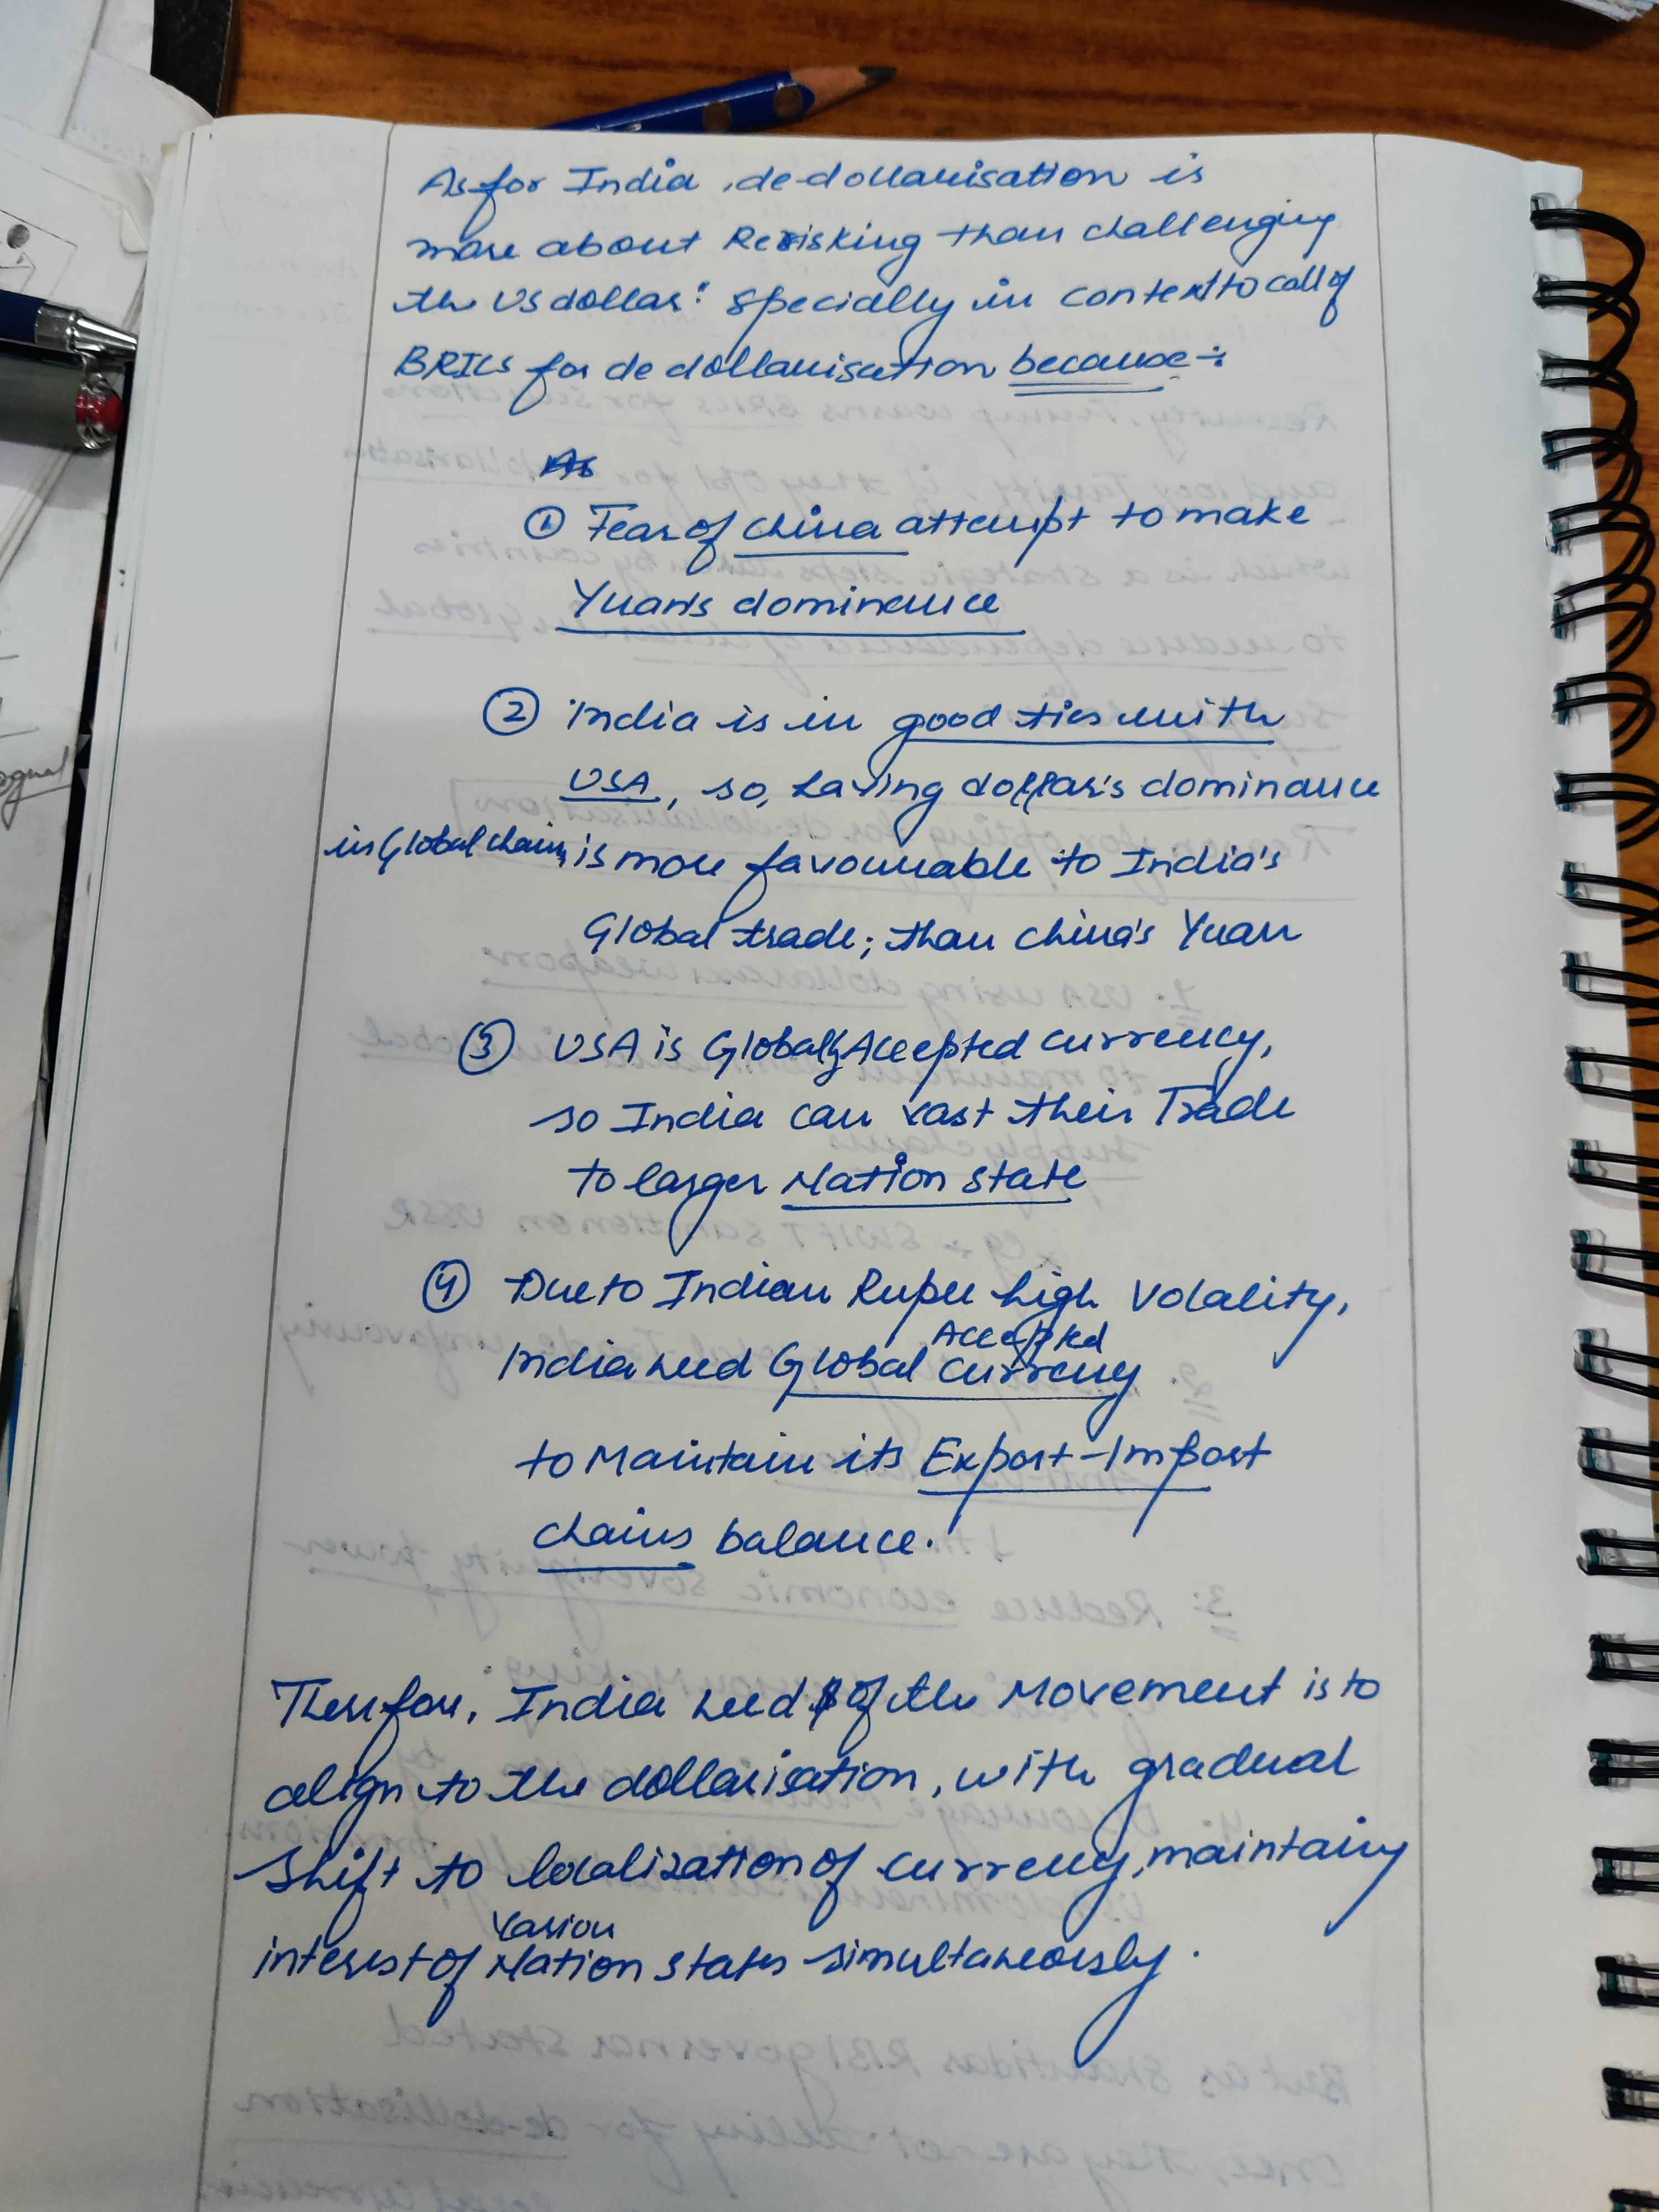 As for India, de-dollarisation is
more about Rerisking than challenging
the US dollar: specially in context to call of
BRICS for de dollarisation because :-
① Fear of china attempt to make
Yuan's dominance
② India is in good ties with
USA, so, having dollar's dominance
in Global chain, is more favourable to India's
Global trade; than china's Yuan
③ USA is Globally Accepted currency,
so India can vast their Trade
to larger Nation state
④ Due to Indian Rupee high Volality,
Accepted
India need Global currency
to Maintain its Export-Import
chains balance.
Therefore, India need of the Movement is to
align to the dollarisation, with gradual
shift to localization of currency, maintaing
Variou
interest of Nation states simultaneously.